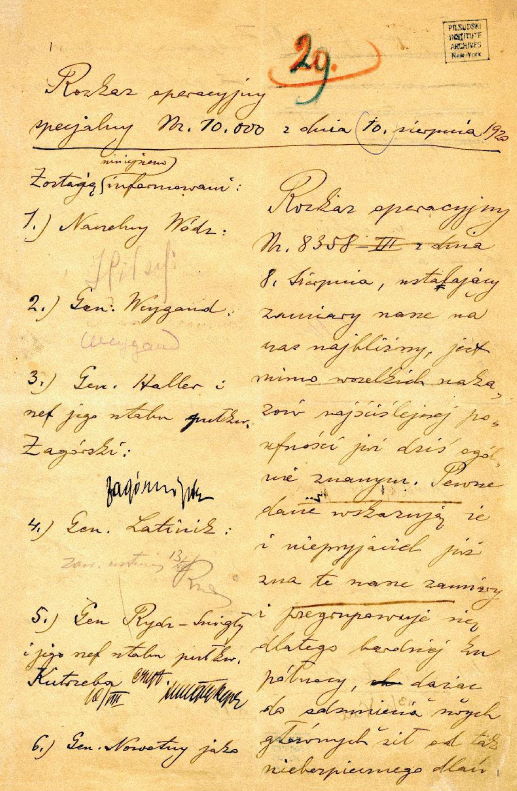 29.
PIŁSUDSKI
INSTITUTE
ARCHIVES
New-York
Rozkaz operacyjny
specjalny Nr. 10.000 z dnia 10. sierpnia 1920
niniejszem
Zostają informowani:
1.) Naczelny Wódz:
2.) Gen. Weygand:
Weygand
3.) Gen. Haller i
szef jego sztabu pułkw.
Zagórski:
4.) Gen. Latinik:
5.) Gen Rydz-Śmigły
i jego szef sztabu pułkw.
Kutrzeba
10/VIII
6.) Gen. Nowotny jako
Rozkaz operacyjny
Nr. 8358 III z dnia
8. Sierpnia, ustalający
zamiary nasze na
czas najbliższy, jest
mimo wszelkich naka-
zów najściślejszej po-
ufności już dziś ogól-
nie znanym. Pewne
dane wskazują że
i nieprzyjaciel już
zna te nasze zamiary
i przegrupowuje się
dlatego bardziej ku
północy, dążąc
do
głównych sił od tak
niebezpiecznego dlań